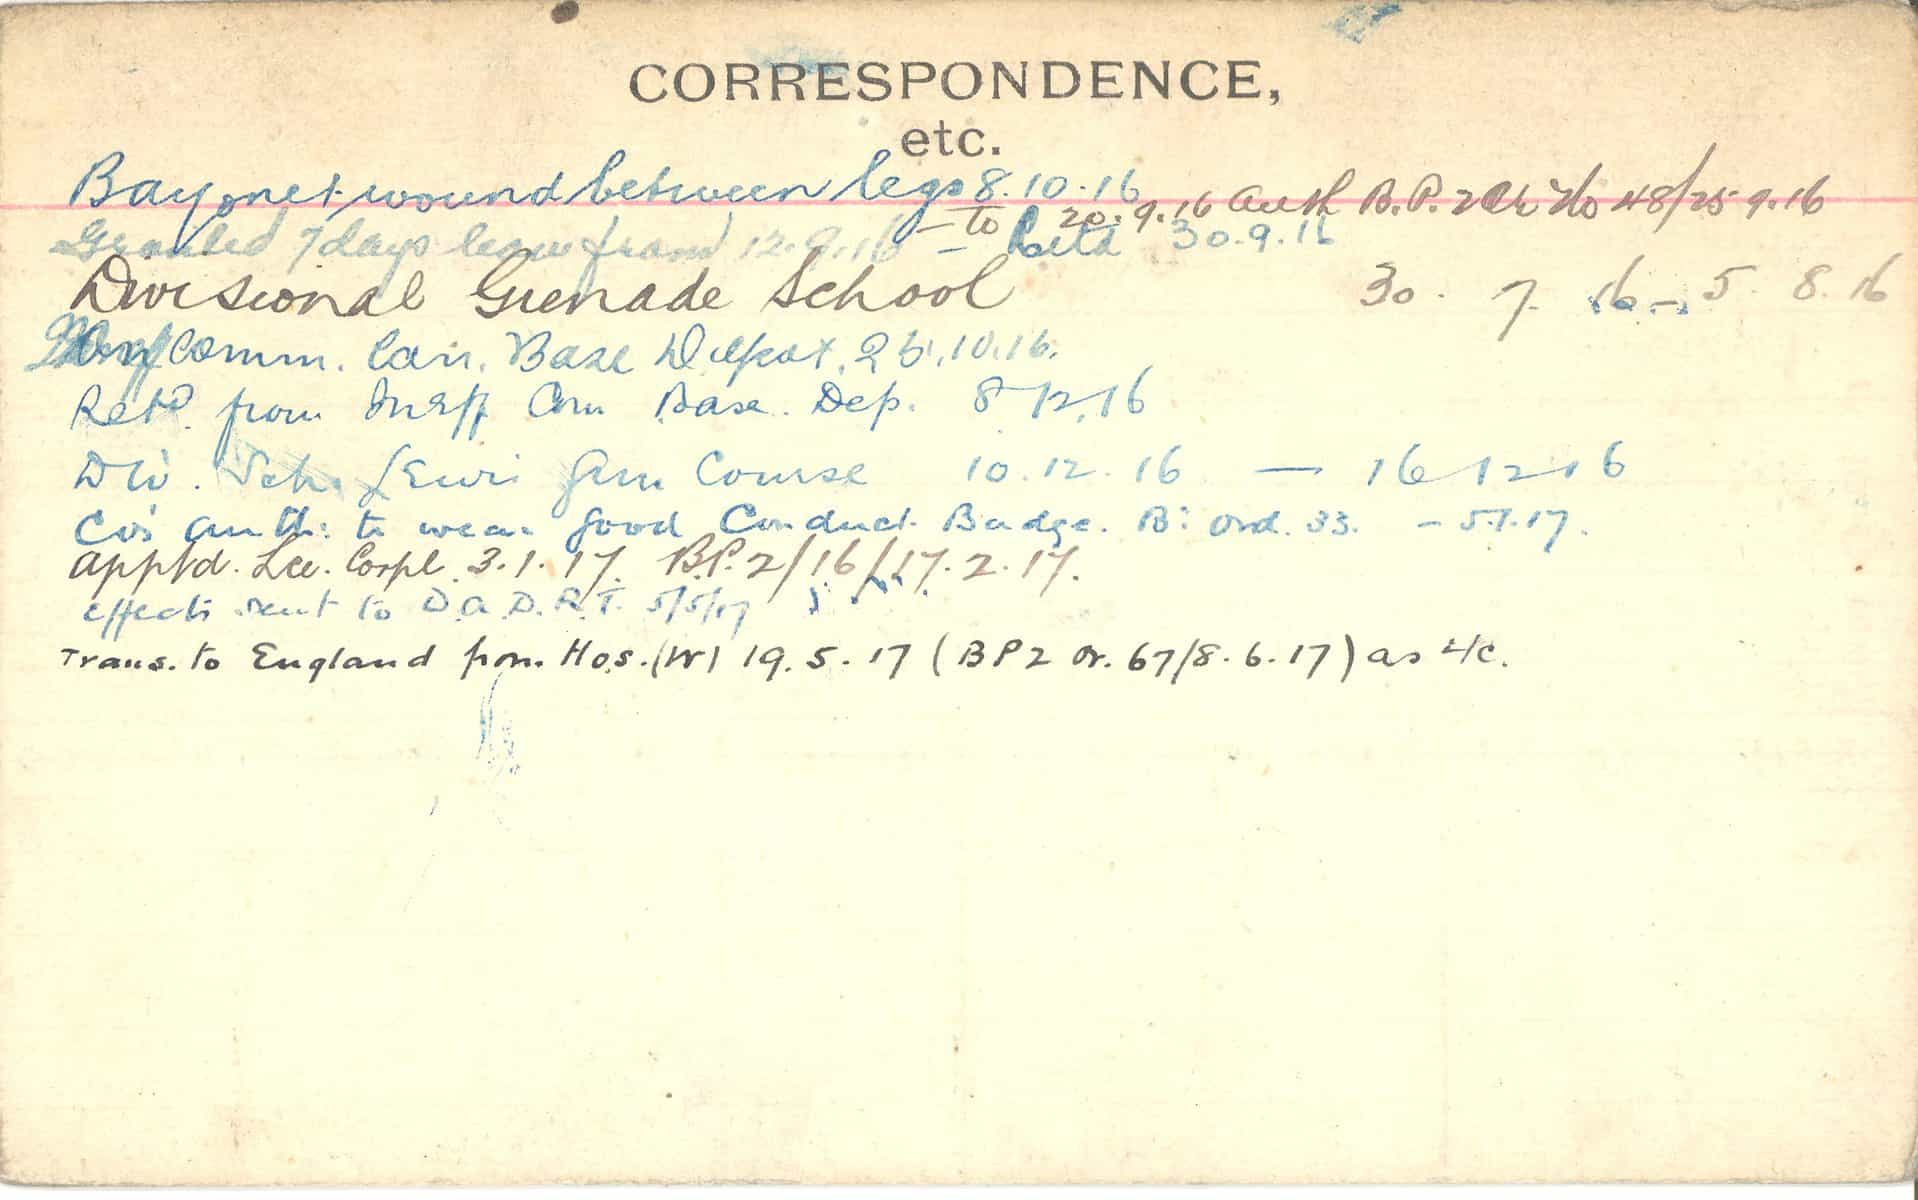 CORRESPONDENCE,
etc.
Bayonet wound between legs 8.10.16
Granted 7 days leave from 12.9.16 - to 20.9.16 auth B.P. 2 Or No 48/25 9.16
- Retd 30.9.16
Divisional Grenade School 30. 7. 16 - 5 8. 16
Comm. Base Depot. 26.10.16.
Retd. from Ineff Com Base. Dep. 8-12.16
Div. Sch. Lewis Gun Course 10.12.16 — 16 12 16
Co's auth: to wear Good Conduct Badge. B: Ord. 33. - 5.1.17.
Apptd. Lce. Corpl 3.1.17. B.P.2/16/17.2.17.
effects sent to D.A.D.R.T. 5/5/17
Trans. to England from Hos. (W) 19.5.17 (BP2 Or. 67/8.6.17) as L/c.